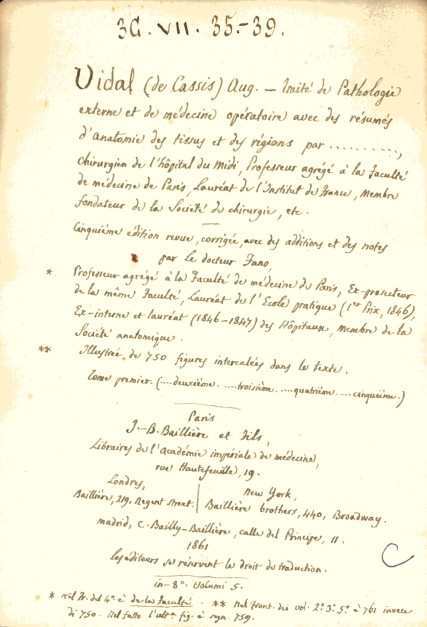 3G. VII. 35.-39.
Vidal (de Cassis) Aug. — Traité de Pathologie
externe et de médecine opératoire avec des résumés
d'anatomie des tissus et des régions par ..........,
Chirurgien de l'hôpital du Midi, Professeur agrégé à la Faculté
de médecine de Paris, Lauréat de l'Institut de France, Membre
fondateur de la Société de chirurgie, etc.
Cinquième édition revue, corrigée, avec des additions et des notes
par le docteur Fano,
* Professeur agrégé à la Faculté de médecine de Paris, Ex-prosecteur
de la même Faculté, Lauréat de l'Ecole pratique (1er Prix, 1846),
Ex-interne et lauréat (1846-1847) des Hôpitaux, Membre de la
Société anatomique.
** Illustrée de 750 figures intercalées dans le texte.
Tome premier. (....deuxième. ....troisième. ....quatrième. ....cinquième.)
Paris
J.-B. Baillière et Fils,
Libraires de l'Académie impériale de médecine,
rue Hautefeuille, 19.
Londres,
Baillière, 219. Regent Street.
New York,
Baillière brothers, 440, Broadway.
Madrid, C. Bailly-Baillière, calle del Principe, 11.
1861
Les éditeurs se réservent le droit de traduction.
in-8° Volumi 5.
* Nel fr. del 4° è de la Faculté. ** Nel front. dei vol. 2° 3° 5° è 761 invece
di 750. Nel fatto l' fig. è segn. 759.